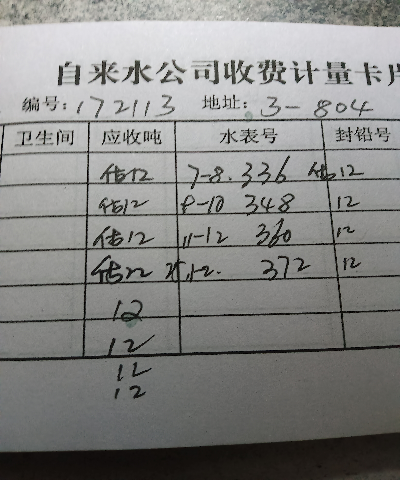 自来水公司收费计量卡片
编号:172113 地址:3-804
卫生间 应收吨 水表号 封铅号
估12 7-8. 336 估12
估12 9-10 348 12
估12 11-12 360 12
估 1-2. 372 12
12
12
12
12